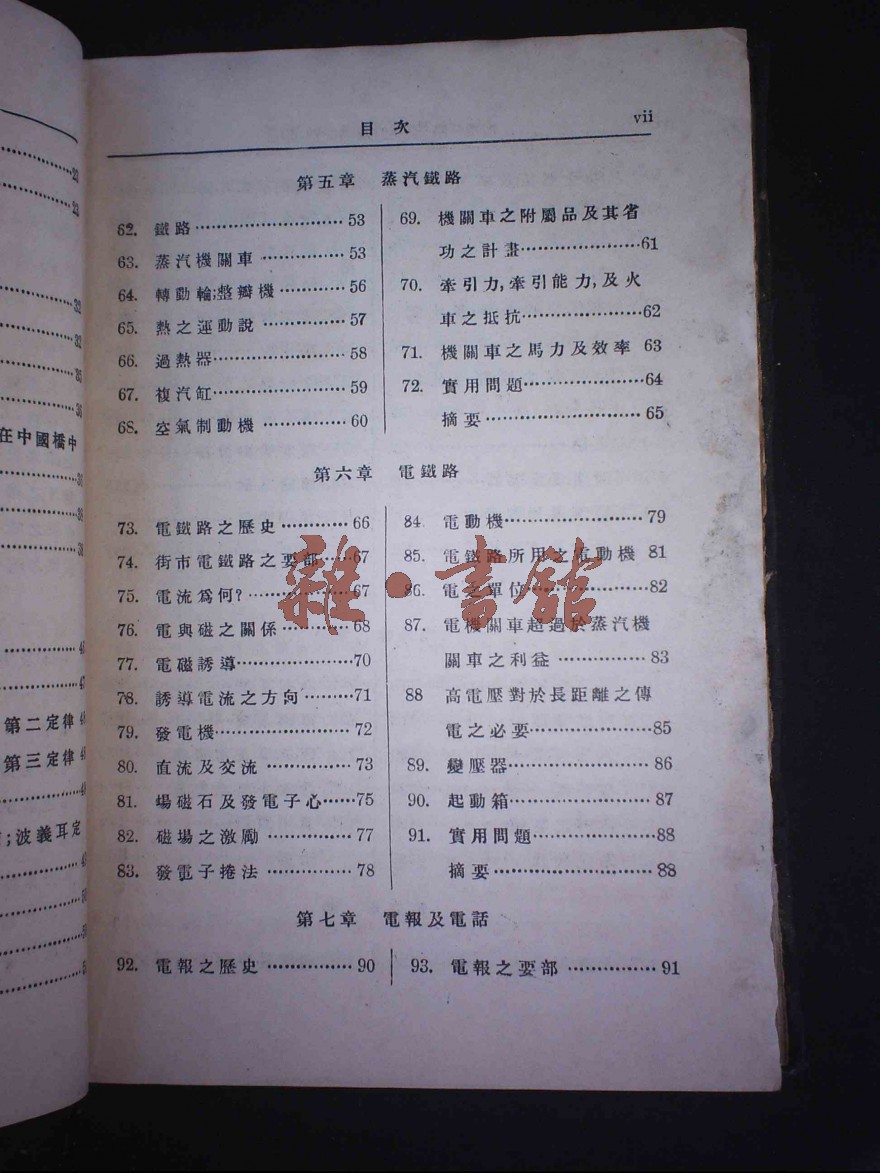 目次
vii
第五章 蒸汽鐵路
62. 鐵路 53
63. 蒸汽機關車 53
64. 轉動輪;整瓣機 56
65. 熱之運動說 57
66. 過熱器 58
67. 複汽缸 59
68. 空氣制動機 60
69. 機關車之附屬品及其省
功之計畫 61
70. 牽引力,牽引能力,及火
車之抵抗 62
71. 機關車之馬力及效率 63
72. 實用問題 64
摘要 65
第六章 電鐵路
73. 電鐵路之歷史 66
74. 街市電鐵路之要部 67
75. 電流爲何? 67
76. 電與磁之關係 68
77. 電磁誘導 70
78. 誘導電流之方向 71
79. 發電機 72
80. 直流及交流 73
81. 場磁石及發電子心 75
82. 磁場之激勵 77
83. 發電子捲法 78
84. 電動機 79
85. 電鐵路所用之電動機 81
86. 電之單位 82
87. 電機關車超過於蒸汽機
關車之利益 83
88 高電壓對於長距離之傳
電之必要 85
89. 變壓器 86
90. 起動箱 87
91. 實用問題 88
摘要 88
第七章 電報及電話
92. 電報之歷史 90
93. 電報之要部 91
22
23
32
32
35
36
在中國橋中
36
38
47
第二定律
第三定律
;波義耳定
雜·書館